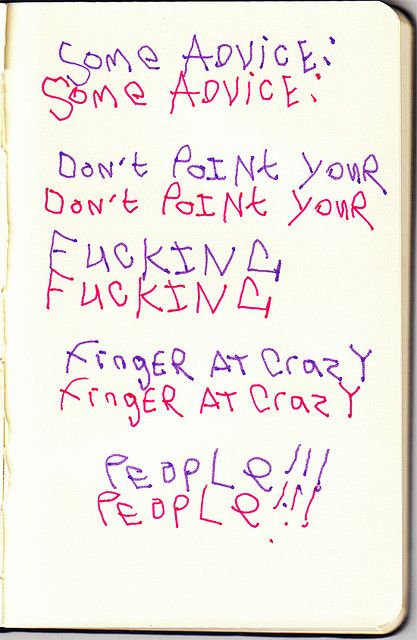 Some ADVICE:
Some ADVICE:
DON't POINt YOUR
DON't POINt YOUR
FUCKING
FUCKING
FingER AT CrazY
FingER AT CrazY
PEOPLe!!!
PEOPLe!!!